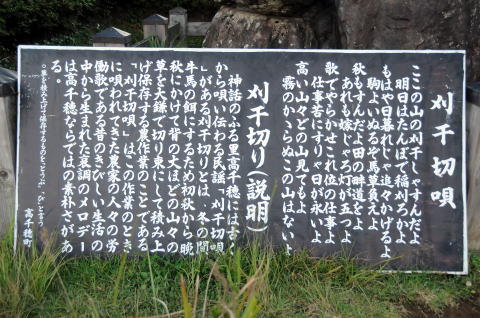 刈干切唄
ここの山の刈干しゃすんだよ
明日はたんぼで稲刈ろかよ
もはや日暮れじゃ追々かげるよ
駒よいぬるぞ馬草負えよ
秋もすんだよ田の畔道をよ
あれも嫁じゃろ灯が五つよ
歌でやらかせこれ位の仕事よ
仕事苦にすりゃ日が永いよ
高い山々どの山見てもよ
霧のかからぬこの山はないよ
刈干切り(説明)
神話のふる里高千穂には古く
から唄い伝わる民謡「刈干切唄
」がある刈干切りとは、冬の間
牛馬の餌にするため初秋から晩
秋にかけて背の丈ほどの山々の
草を大鎌で切り束にして積み上
げ保存する農作業のことである
「刈干切唄」はこの作業のとき
に唄われてきた農家の人々の労
働歌である昔のきびしい生活の
中から生まれた哀調のメロデー
は高千穂ならではの素朴さがあ
る。
○草を積み上げて保存するものを、とうぶ、と言う
高千穂町